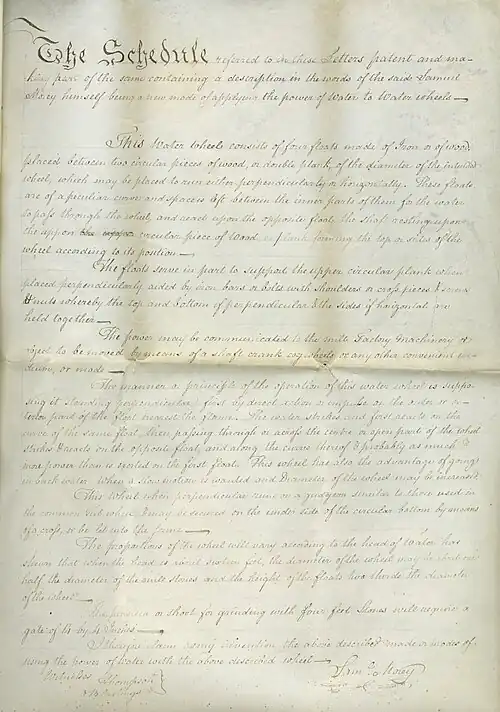 The Schedule referred to in these Letters patent and ma-
king part of the same containing a description in the words of the said Samuel
Morey himself being a new mode of applying the power of Water to Water wheels.
This Water wheels consists of four floats made of Iron or of wood
placed between two circular pieces of wood, or double plank, of the diameter of the intended
wheel, which may be placed to run either perpendicularly or horizontally. These floats
are of a peculiar curve and spaces left between the inner parts of them for the water
to pass through the wheel, and react upon the opposite float, the shaft resting upon
the upper circular piece of Wood or plank forming the top or sides of the
wheel according to its position.
The floats serve in part to support the upper circular plank when
placed perpendicularly aided by iron bars or bolts with shoulders or cross pieces & screws
& nuts whereby the top and bottom if perpendicular & the sides if horizontal are
held together.
The power may be communicated to the mill Factory Machinery or
to be moved by means of a shaft crank cog wheels or any other convenient me-
dium, or mode.
The manner & principle of the operation of this water wheel is suppo-
sing it standing perpendicular, first by direct action or impulse on the outer or ex-
terior part of the float nearest the flume. The water strikes and first reacts on the
curve of the same float, then passing through or across the centre or open part of the wheel
strikes & reacts on the opposite float, and along the curve thereof & probably as much or
more power than is exerted on the first float. This wheel has also the advantage of going
in back water. When a slow motion is wanted and Diameter of the wheel may be increased
This Wheel when perpendicular runs on a gudgeon similar to those used in
the common tub wheel & may be secured on the under side of the circular bottom by means
of a cross, or be let into the same.
The proportions of the wheel will vary according to the head of Water has
shewn that when the head is about sixteen feet, the diameter of the wheel may be about one
half the diameter of the mill stones and the height of the floats two thirds the diameter
of the wheel.
or shoot for grinding with four feet Stones will require a
gate of 4 by 4 Inches.
I therefore claim as my invention the above described mode or modes of
using the power of Water with the above described wheel.
Witnesses
Thompson
Saml. Morey